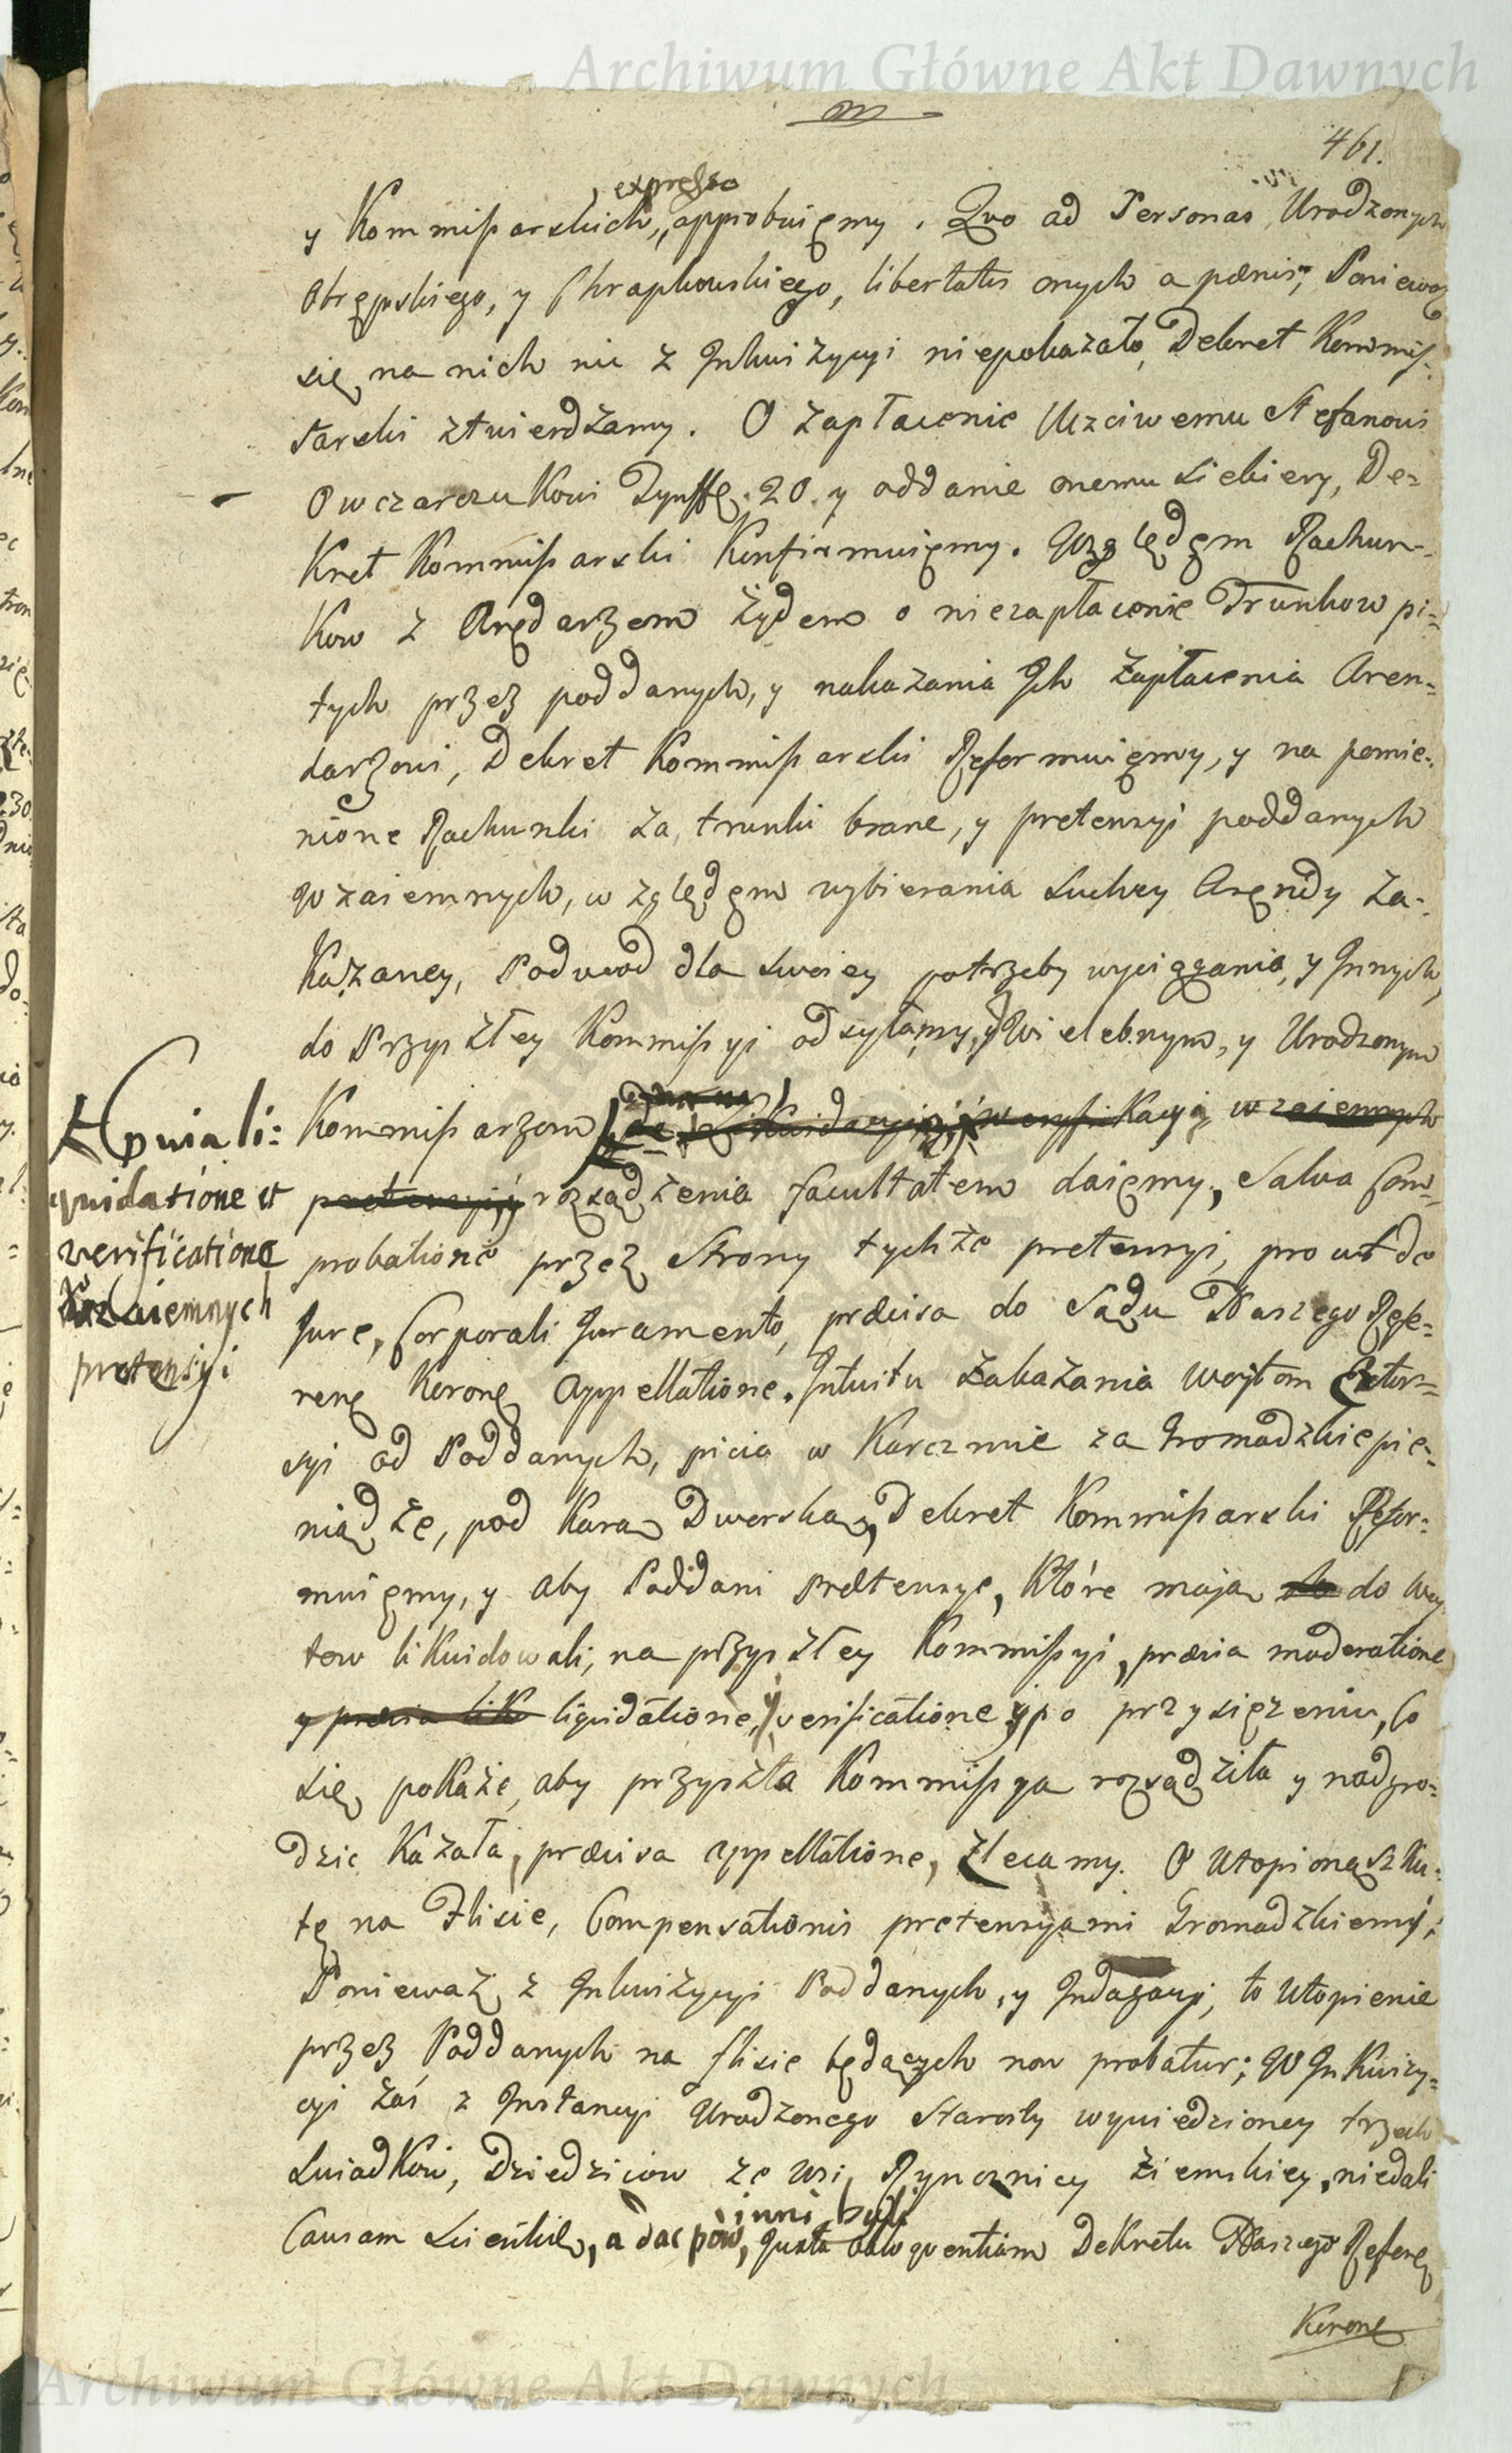 Archiwum Główne Akt Dawnych
461.
expresso
y Kommissarskich, approbuięmy. Quo ad Personas Urodzonych
Obrępskiego, y Chrapkowskiego, libertatis onych a pænis, Poniewaz
się na nich nic z Inkwizycyi niepokazało, Dekret Kommis-
sarski ztwierdzamy. O zapłacenie Uczciwemu Stefanowi
Owczarczukowi Tynffę. 20. y oddanie onemu siekiery, De=
kret Kommissarski Konfirmuięmy. Względęm Rachun-
kow z Arędarzem Żydem o niezapłacenie Trunkow pi=
tych przez poddanych, y nakazania Ich zapłacenia Aren=
darzowi, Dekret Kommissarski Reformuięmy, y na pomie=
nione Rachunki za trunki brane, y pretensyi poddanych
wzaiemnych, względęm wybierania Suchey Aręndy za=
kazaney, Podwod dla swoiey potrzeby wyciągania, y Innych,
do Przyszłey Kommissyi odsyłamy, y Wielebnym, y Urodzonym
Kommissarzom do Likwidacyi y weryfikacyą wzaiemnych
pretensyi, y rozsądzenia facultatem daięmy, Salva Com=
probatione przez Strony tychże pretensyi, prout de
Jure, Corporali Juramento, præcisa do Sądu Naszego Refe=
renę Koronę Appellatione. Intuitu zakazania woytom Extor=
syi od Poddanych, picia w Karczmie za Gromadzkie pie=
niądze, pod Karą Dworską, Dekret Kommissarski Refor=
muięmy, y aby Poddani Prætensye, które maja do Woy
tow likwidowali, na przyszłey Kommissyi, prævia moderatione
y prævia lik liquidatione, y verificatione ypo przysięzeniu, Co
się pokaże, aby przyszła Kommissya rozsądziła y nadgro=
dzic kazała, præcisa appellatione, zlecamy. O Utopioną szku=
tę na Flisie, Compensationis pretensyami Gromadzkiemi;
Ponieważ z Inkwizycyi Poddanych, y Indagacyi, to utopienie
przez Poddanych na flisie będączych non probatur; W Inkwizy=
cyi zaś z Instancyi Urodzonego Starosty wywiedzioney trzech
Swiadkow, Dziedzicow ze wsi Rynoznicy Ziemskiey, niedali
inni byli
Causam Scientiæ, a dac pow, Juxta eloquentiam Dekretu Naszego Referę
Koronę
pævia li:
quidatione et
verificatione
wzaiemnych
pretensyi
Archiwum Główne Akt Dawnych